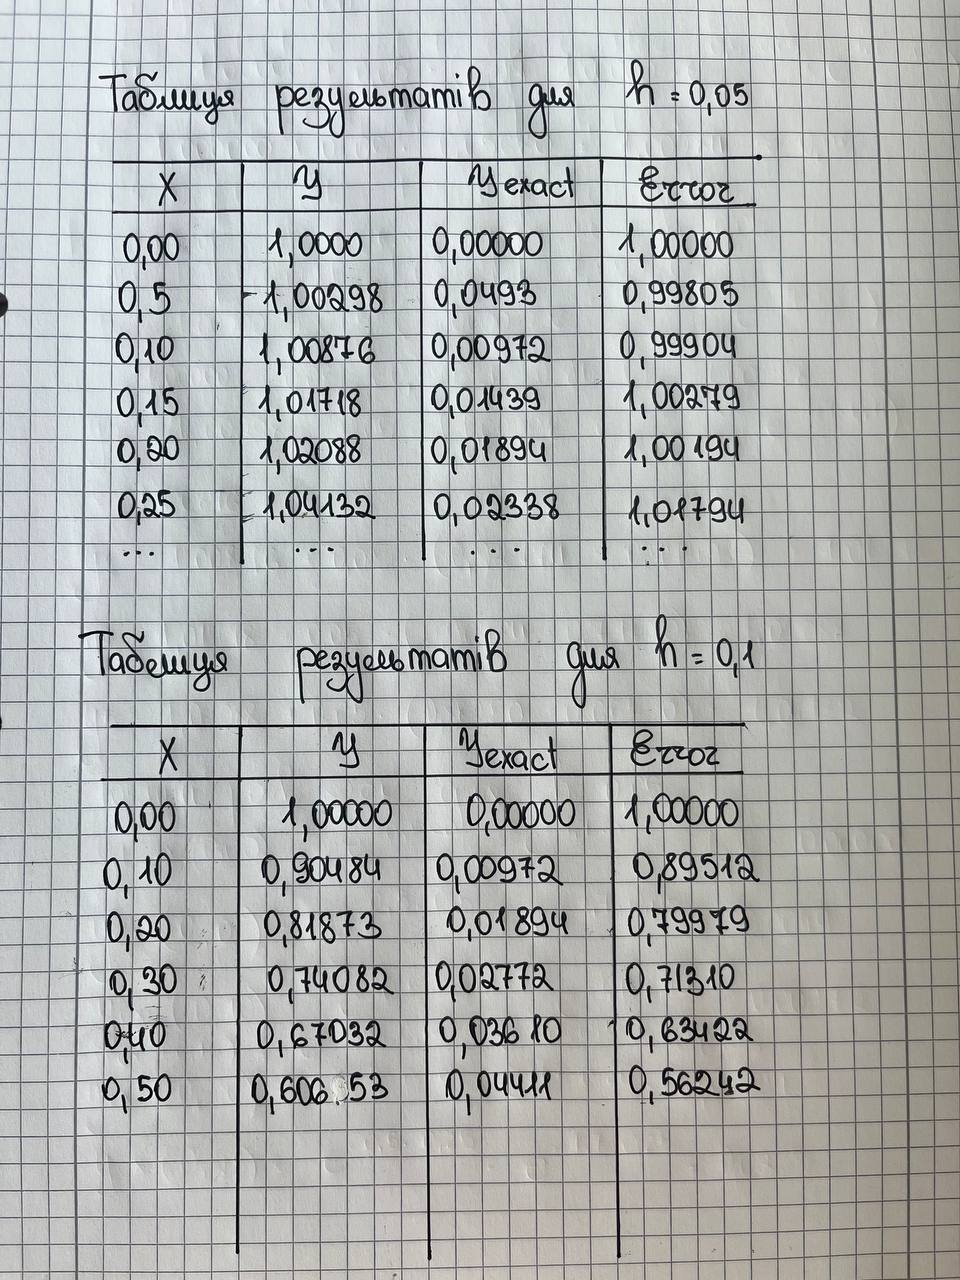 Таблиця результатів для h = 0,05
X y yexact Error
0,00 1,0000 0,00000 1,00000
0,5 1,00298 0,0493 0,99805
0,10 1,00876 0,00972 0,99904
0,15 1,01718 0,01439 1,00279
0,20 1,02088 0,01894 1,00194
0,25 1,04132 0,02338 1,01794
... ... ... ...
Таблиця результатів для h = 0,1
X y yexact Error
0,00 1,00000 0,00000 1,00000
0,10 0,90484 0,00972 0,89512
0,20 0,81873 0,01894 0,79979
0,30 0,74082 0,02772 0,71310
0,40 0,67032 0,03610 0,63422
0,50 0,60653 0,04411 0,56242